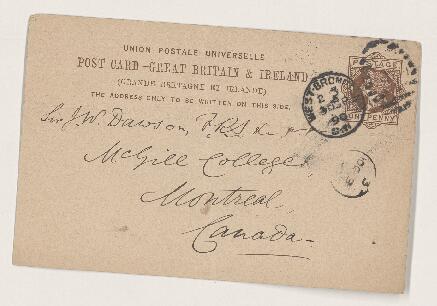 UNION POSTALE UNIVERSELLE
POST CARD-GREAT BRITAIN & IRELAND
(GRANDE BRETAGNE ET IRLANDE)
THE ADDRESS ONLY TO BE WRITTEN ON THIS SIDE.
POSTAGE
ONE PENNY
WEST-BROMWICH
Sir J. W. Dawson, F.R.S. &c
McGill College,
Montreal,
Canada